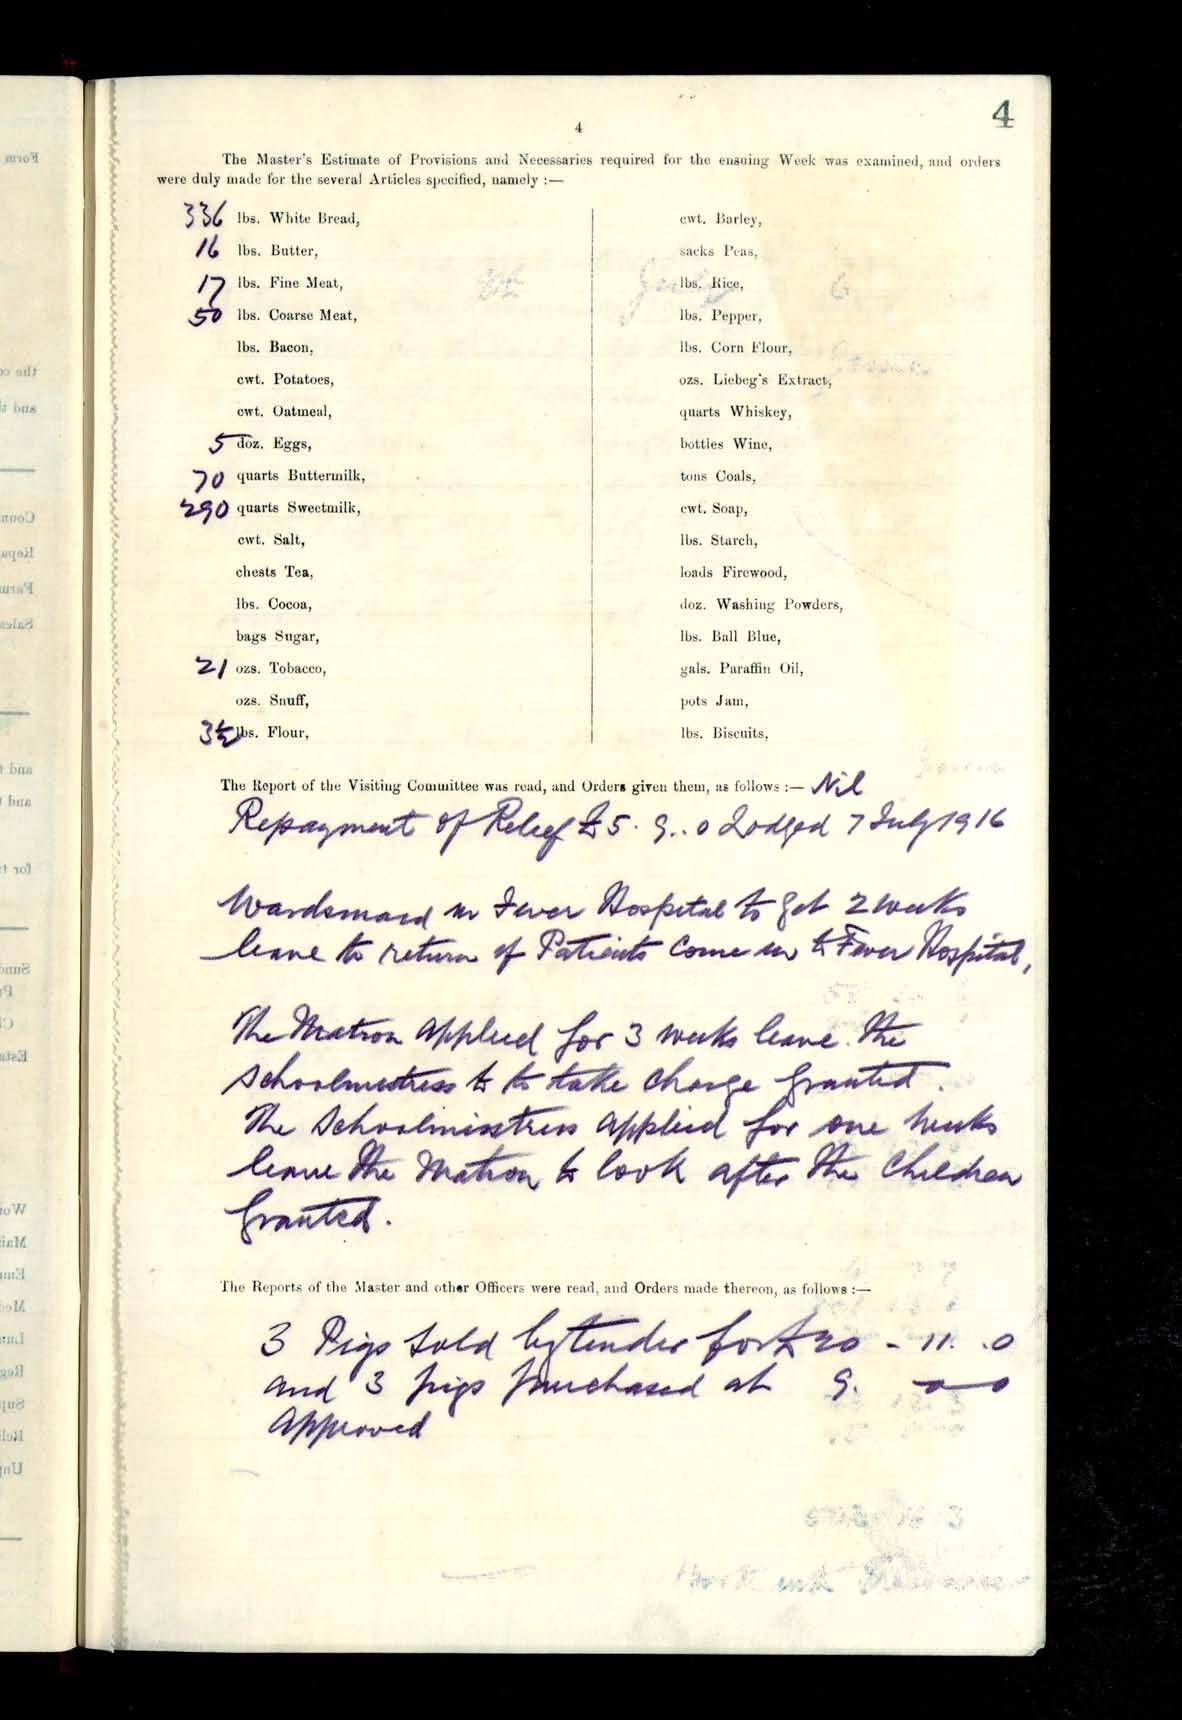 4
4
The Master's Estimate of Provisions and Necessaries required for the ensuing Week was examined, and orders
were duly made for the several Articles specified, namely :—
336 lbs. White Bread,
16 lbs. Butter,
17 lbs. Fine Meat,
50 lbs. Coarse Meat,
lbs. Bacon,
cwt. Potatoes,
cwt. Oatmeal,
5 doz. Eggs,
70 quarts Buttermilk,
290 quarts Sweetmilk,
cwt. Salt,
chests Tea,
lbs. Cocoa,
bags Sugar,
21 ozs. Tobacco,
ozs. Snuff,
3½ lbs. Flour,
cwt. Barley,
sacks Peas,
lbs. Rice,
lbs. Pepper,
lbs. Corn Flour,
ozs. Liebeg's Extract,
quarts Whiskey,
bottles Wine,
tons Coals,
cwt. Soap,
lbs. Starch,
loads Firewood,
doz. Washing Powders,
lbs. Ball Blue,
gals. Paraffin Oil,
pots Jam,
lbs. Biscuits,
The Report of the Visiting Committee was read, and Orders given them, as follows :— Nil
Repayment of Relief £5 . 9 .. 0 Lodged 7 July 1916
Wardsmaid in Fever Hospital to get 2 weeks
leave to return if Patients come in to Fever Hospital,
The Matron applied for 3 weeks leave. The
Schoolmistress to to take charge granted.
The Schoolmisstress applied for one weeks
leave the Matron to look after the Children
Granted.
The Reports of the Master and other Officers were read, and Orders made thereon, as follows :—
3 Pigs sold by tender for £20 - 11. .0
and 3 pigs purchased at 9. 0 0
Approved